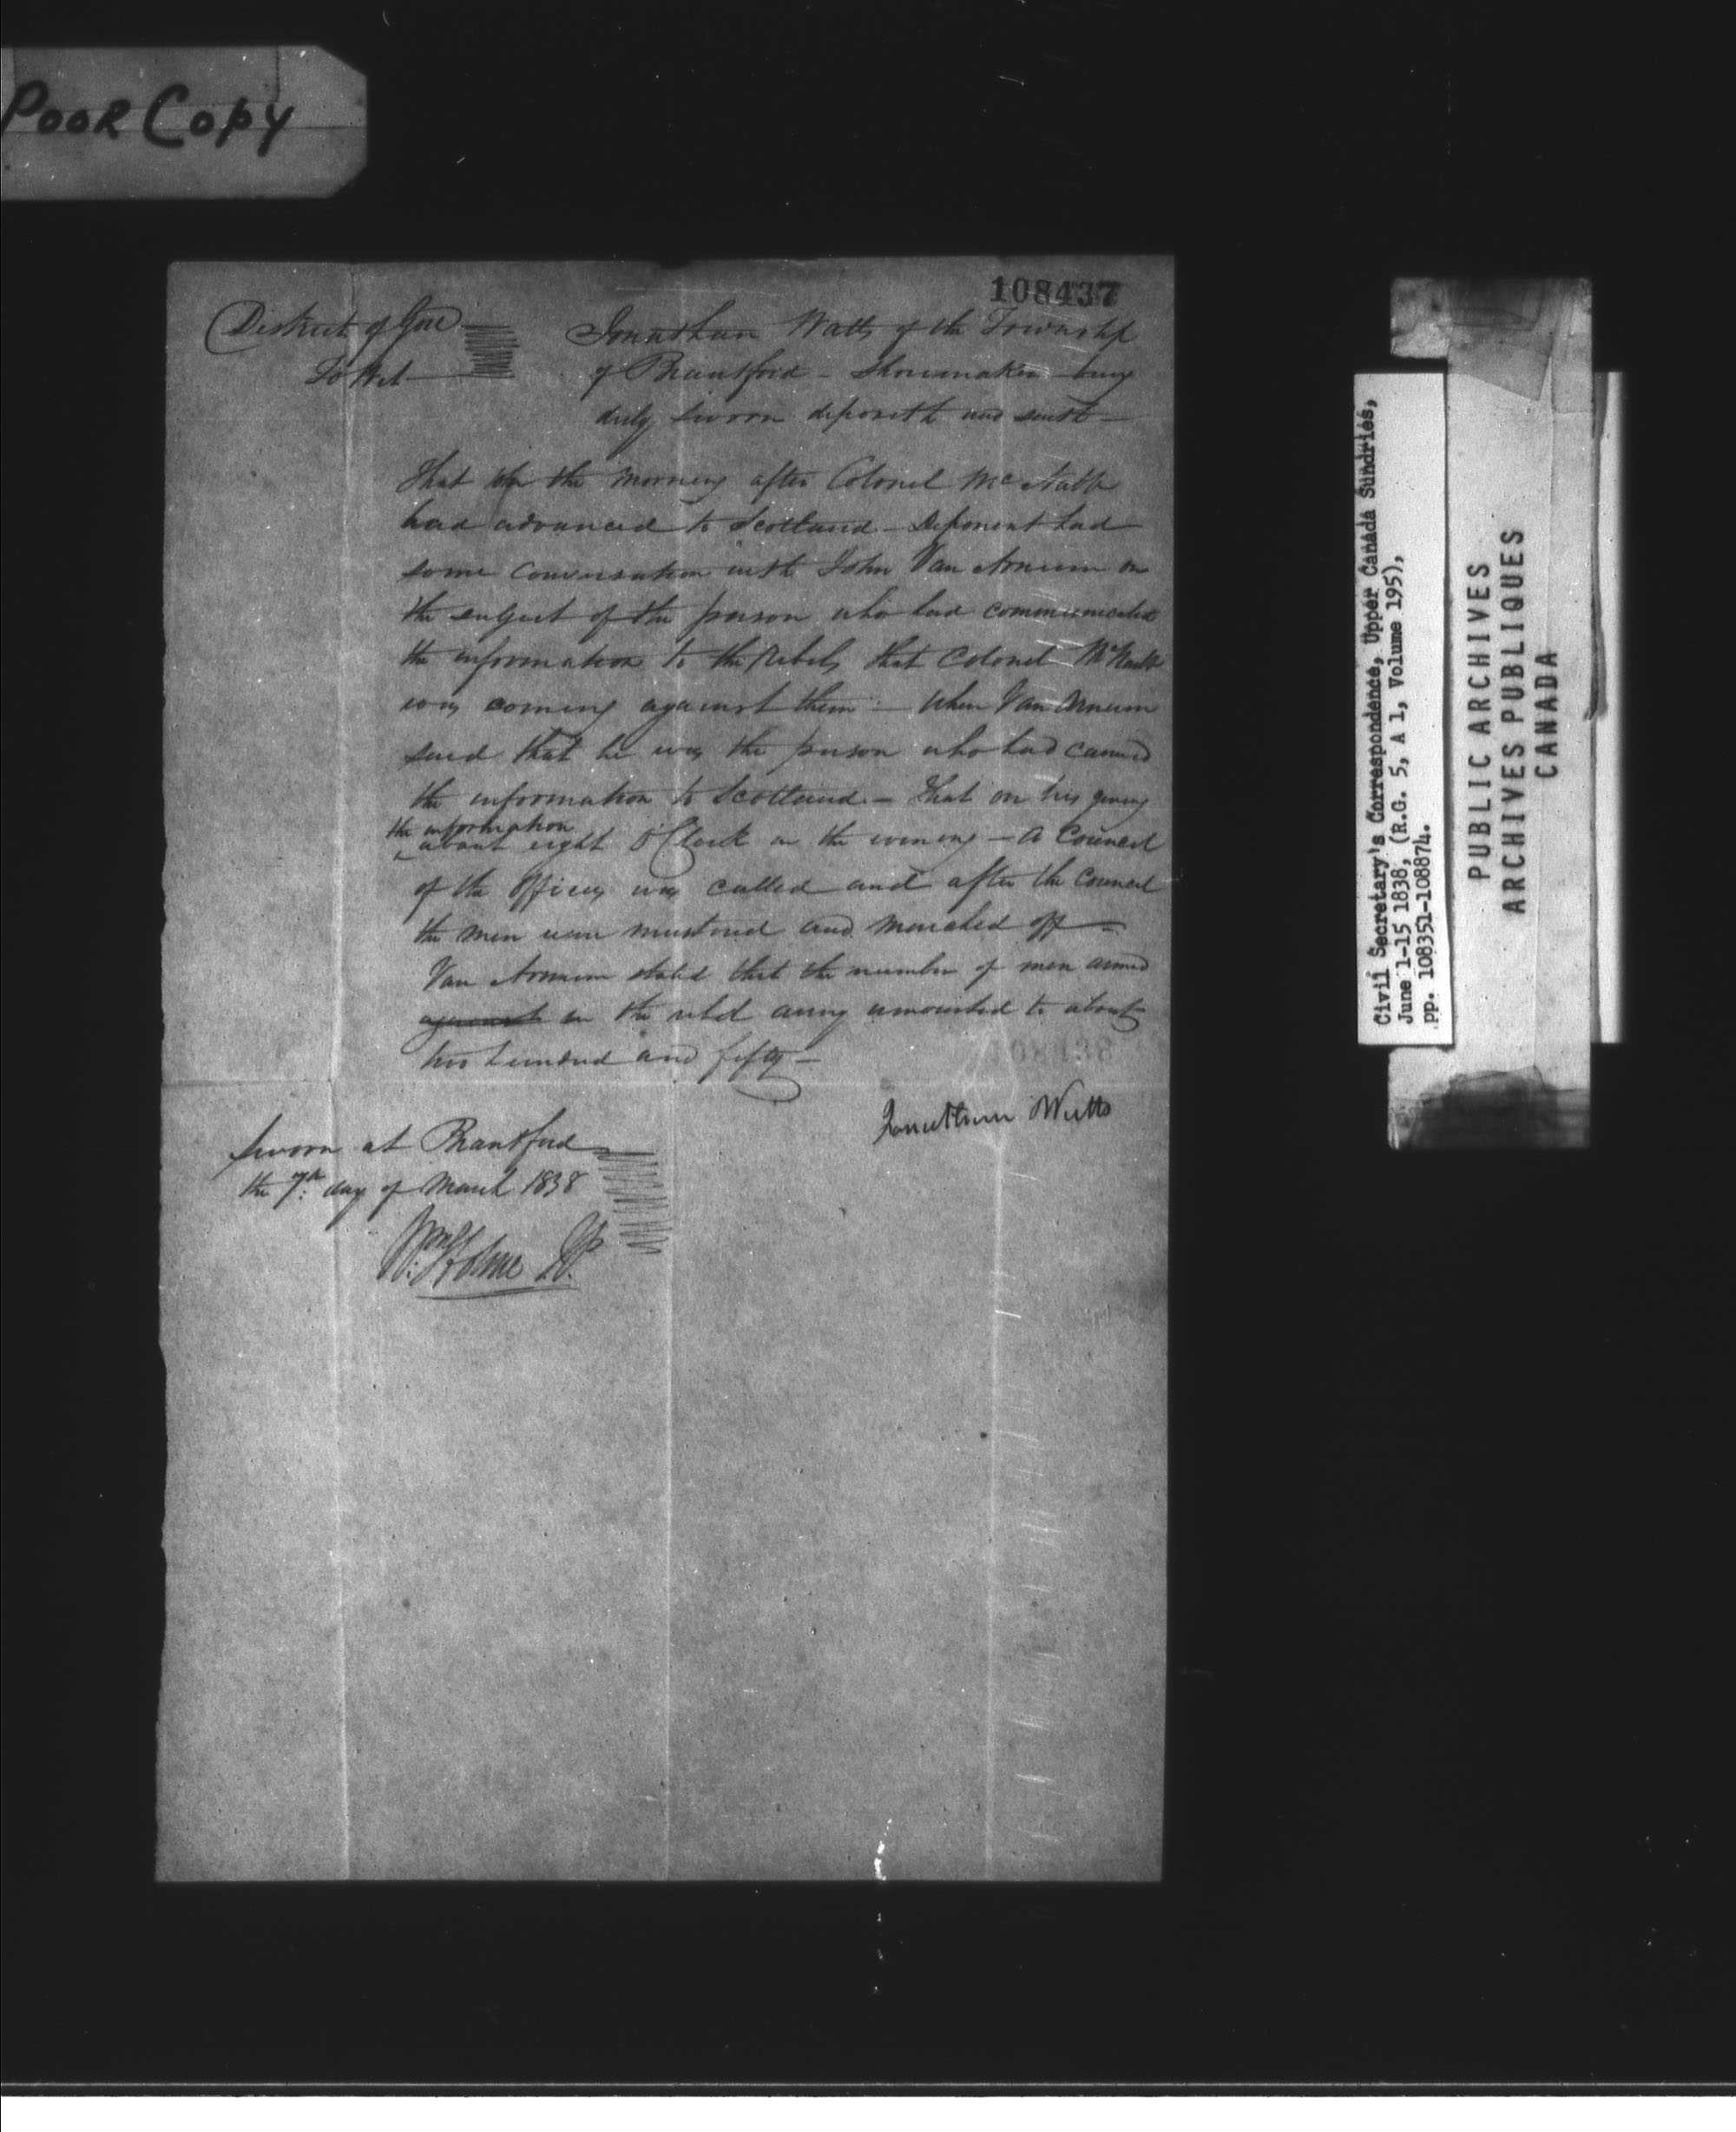 Poor Copy
108437
District of Gore
To Wit
Jonathan Watts of the Township
of Brantford - Shoemaker - being
duly sworn deposeth and saith -
That the morning after Colonel McNabb
had advanced to Scotland - Deponent had
some conversation with John Van Arnum on
the subject of the person who had communicated
the information to the Rebels, that Colonel McNabb
was coming against them - when Van Arnum
said that he was the person who had carried
the information to Scotland - That on his giving
the information
about eight O'Clock in the evening - a Council
of the Officers was called and after the Council
the men were mustered and marched off -
Van Arnum stated that the number of men armed
against in the rebel army amounted to about
two hundred and fifty -
Jonathan Watts
Sworn at Brantford
the 7th day of March 1838
Wm Holme JP.
Civil Secretary's Correspondence, Upper Canada Sundries,
June 1-15 1838, (R.G. 5, A 1, Volume 195),
pp. 108351-108874.
PUBLIC ARCHIVES
ARCHIVES PUBLIQUES
CANADA